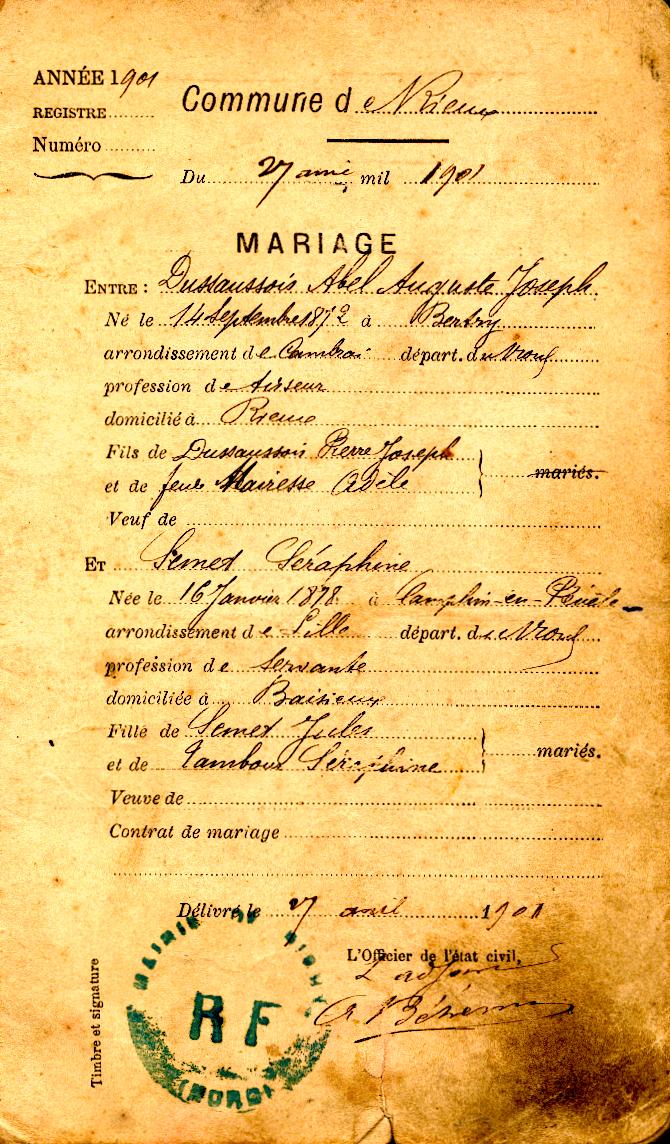 ANNÉE 1901
REGISTRE
Numéro
Commune de Rieux
Du 27 avril mil 1901
MARIAGE
ENTRE : Dussaussois Abel Auguste Joseph
Né le 14 Septembre 1872 à Bertry
arrondissement de Cambrai départ. du Nord
profession de
domicilié à Rieux
Fils de Dussaussois Pierre Joseph
et de feue Mairesse Adèle
mariés.
Veuf de
ET Semet Séraphine
Née le 16 Janvier 1878 à Camphin-en-Pévèle
arrondissement de Lille départ. du Nord
profession de servante
domiciliée à Baisieux
Fille de Semet Jules
et de Tambour Séraphine
mariés.
Veuve de
Contrat de mariage
Délivré le 27 avril 1901
L'Officier de l'état civil,
L'adjoint
Timbre et signature
MAIRIE DE
RF
(NORD)